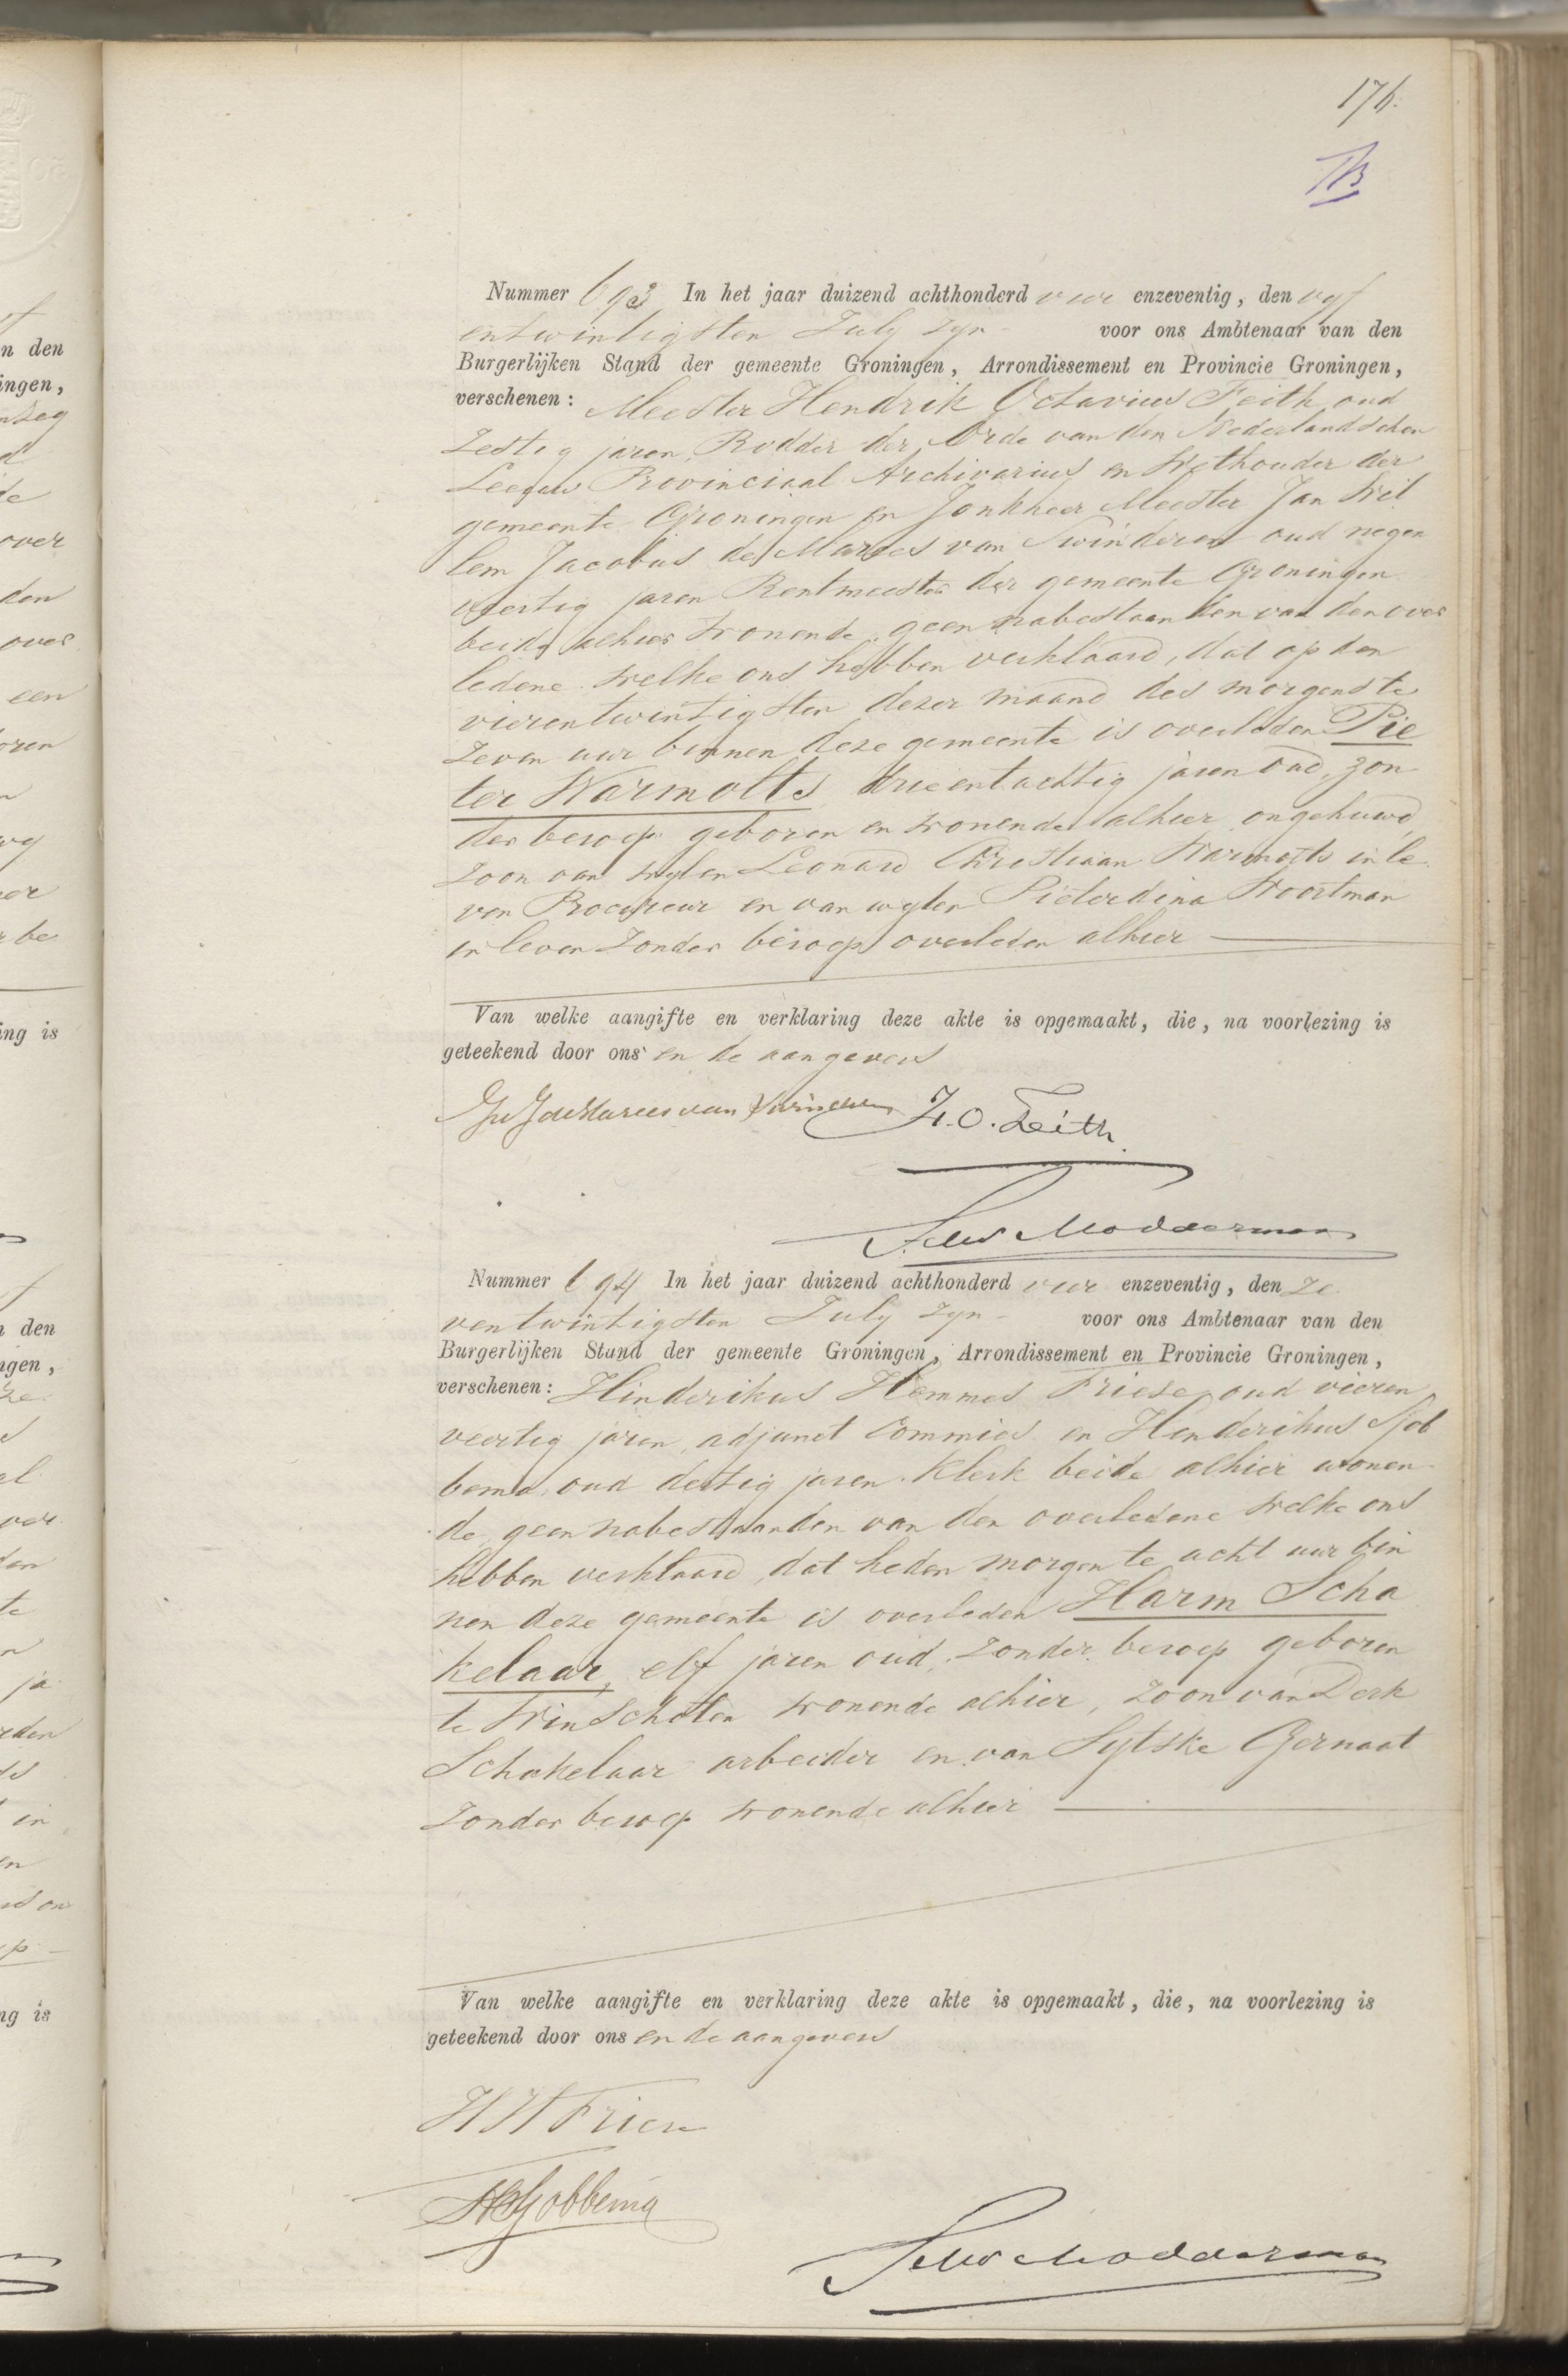 176.
Nummer 693 In het jaar duizend achthonderd vier enzeventig, den vyf
entwintigsten July zyn voor ons Ambtenaar van den
Burgerlijken Stand der gemeente Groningen, Arrondissement en Provincie Groningen,
verschenen: Meester Hendrik Octavius Feith oud
zestig jaren, Ridder der Orde van den Nederlandschen
Leeuw Provinciaal Archivarius en Wethouder der
gemeente Groningen en Jonkheer Meester Jan Wil
lem Jacobus de Marees van Swinderen oud negen
veertig jaren Rentmeester der gemeente Groningen
beide alhier wonende, geen nabestaanden van den over
ledene welke ons hebben verklaard, dat op den
vierentwintigsten dezer maand des morgens te
zeven uur binnen deze gemeente is overleden Pie
ter Warmolts, drieentachtig jaren oud, zon
der beroep geboren en wonende alhier, ongehuwd,
zoon van wylen Leonard Christiaan Warmolts in le
ven Procureur en van wylen Pieterdina Woortman
in leven zonder beroep overleden alhier
Van welke aangifte en verklaring deze akte is opgemaakt, die, na voorlezing is
geteekend door ons en de aangevers
JWJ de Marees van Swinderen H.O. Feith.
Modderman
Nummer 694 In het jaar duizend achthonderd vier enzeventig, den ze
ventwintigsten July zyn voor ons Ambtenaar van den
Burgerlijken Stand der gemeente Groningen, Arrondissement en Provincie Groningen,
verschenen: Hinderikus Hemmes Friese oud vieren
veertig jaren, adjunct Commies en Henderikus Sjob
bema, oud dertig jaren Klerk beide alhier wonen
de, geen nabestaanden van den overledene welke ons
hebben verklaard, dat heden morgen te acht uur bin
nen deze gemeente is overleden Harm Scha
kelaar, elf jaren oud, zonder beroep geboren
te Winschoten wonende alhier, zoon van Derk
Schakelaar arbeider en van Sytske Gernaat
zonder beroep wonende alhier
Van welke aangifte en verklaring deze akte is opgemaakt, die, na voorlezing is
geteekend door ons en de aangevers
HH Friese
HSjobbema
Modderman